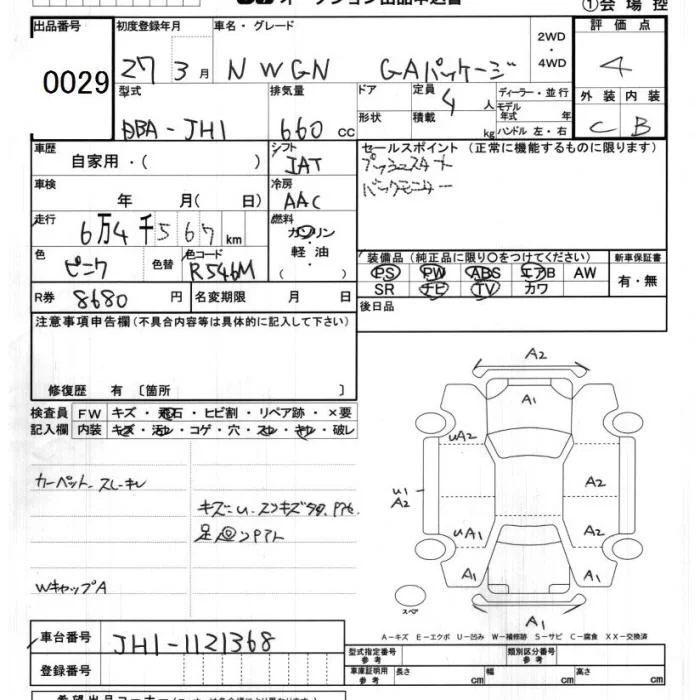 ①会場控
出品番号 0029
初度登録年月 27 3月
車名・グレード N WGN GAパッケージ
2WD・4WD
評価点 4
型式 DBA-JH1
排気量 660 cc
ドア 形状
定員 4人
積載 kg
ディーラー・並行
モデル年式 年
ハンドル 左・右
外装 C
内装 B
車歴 自家用・( )
シフト IAT
セールスポイント (正常に機能するものに限ります)
プッシュスタート
バックモニター
車検 年 月( 日)
冷房 AAC
走行 6万4千567km
燃料 ガソリン・軽油・( )
色 ピンク
色替
色コード R546M
装備品 (純正品に限り○をつけてください)
PS PW ABS エアB AW
SR ナビ TV カワ
新車保証書 有・無
R券 8680円
名変期限 月 日
後日品
注意事項申告欄(不具合内容等は具体的に記入して下さい)
修復歴 有〔箇所 〕
検査員記入欄
FW キズ・飛石・ヒビ割・リペア跡・×要
内装 キズ・汚レ・コゲ・穴・スレ・キレ・破レ
カーペット スレ キレ
WキャップA
A2
A1
uA2
u1 A2
A2
uA1
A2
A1
A1
A1
スペア
A-キズ E-エクボ U-凹み W-補修跡 S-サビ C-腐食 XX-交換済
車台番号 JH1-1121368
登録番号
型式指定番号 参考
類別区分番号 参考
車庫証明用 参考 長さ cm 幅 cm 高さ cm